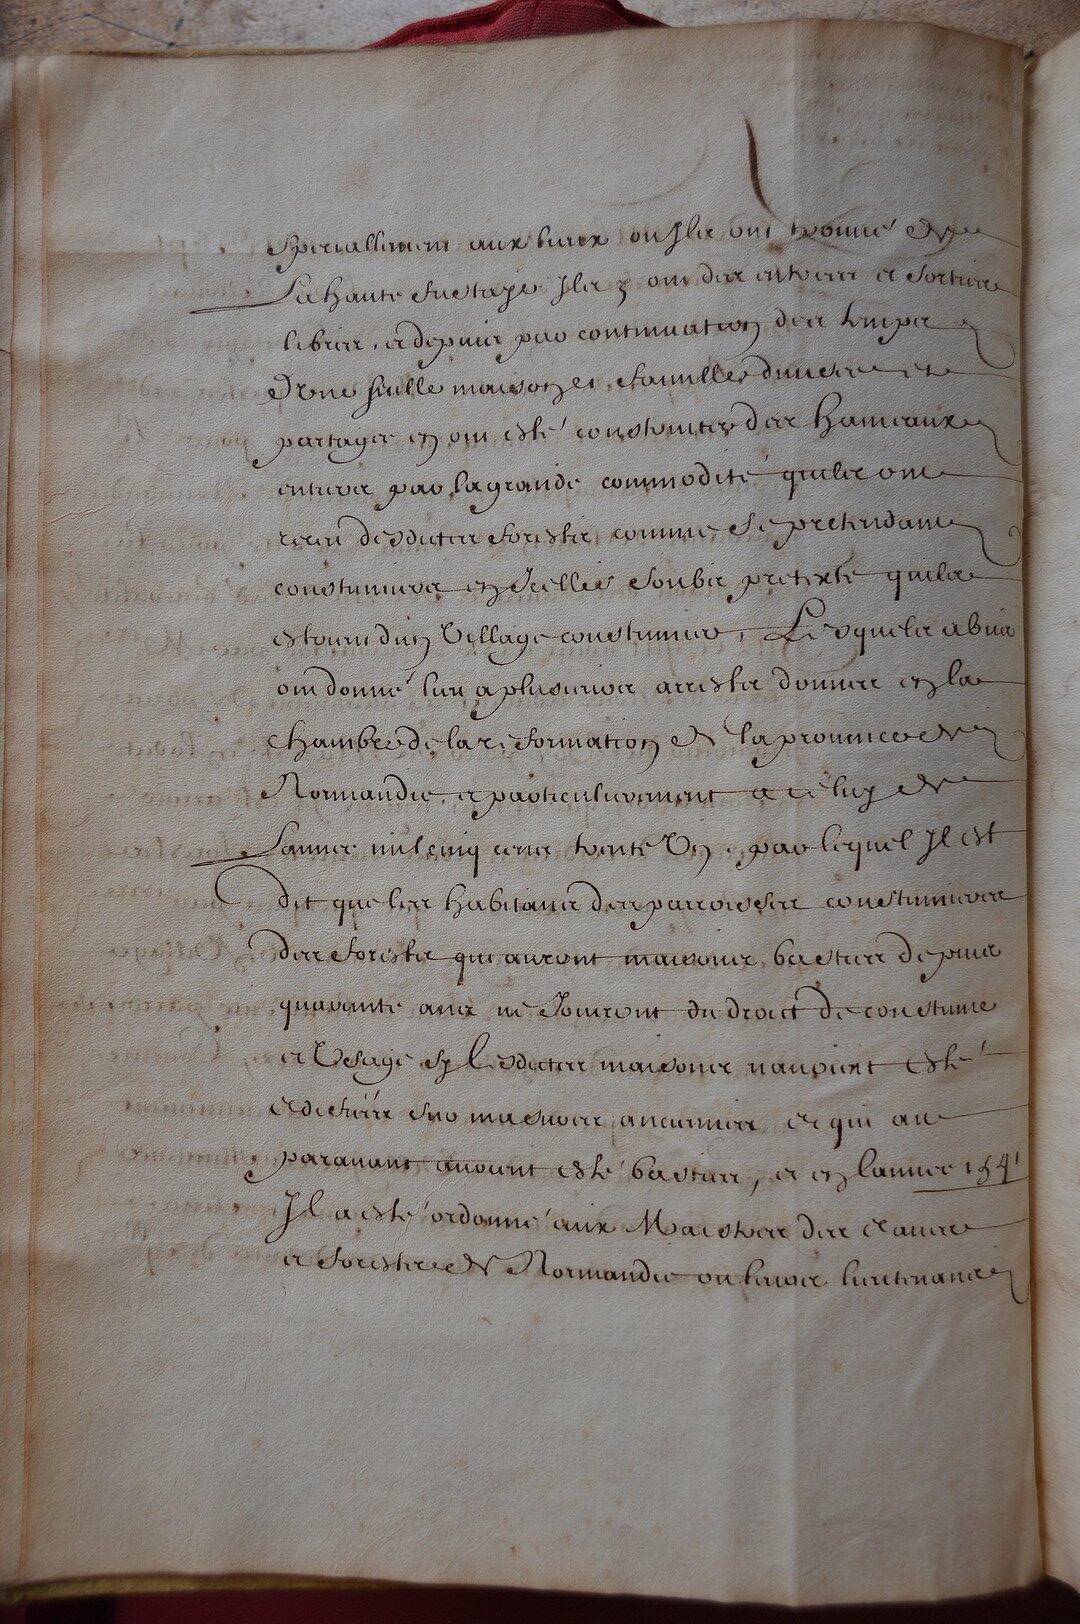 Speciallement aux lieux ou Ils ont trouué de
La haute fustaye Ils y ont des entrées et sorties
libres, et depuis par continuation des temps
D'une seulle maison et famille diuisée et
partagée en ont esté construites des Hameaux
entiers par la grande commodité quils ont
receu desdictes forests comme se pretendans
coustumiers en Icelles soubs pretexte quils
estoient d'un Village coustumier, Lesquels abus
ont donné lieu a plusieurs arrests donnez en la
chambre de la reformation de la prouince de
Normandie, et particulierement a celuy de
Lannee mil cinq cens trente Un, par lequel Il est
dit que les habitans des parroisses coustumieres
des forests qui auront maisons basties depuis
quarante ans ne Jouiront du droict de coustume
et Usage sy Lesdictes maisons nauoient esté
Ediffiées sur masures anciennes et qui au
parauant auoient esté basties, et en lannee 154
Il a esté ordonné aux Maistres des eaues
et forests de Normandie ou leurs lieutenans